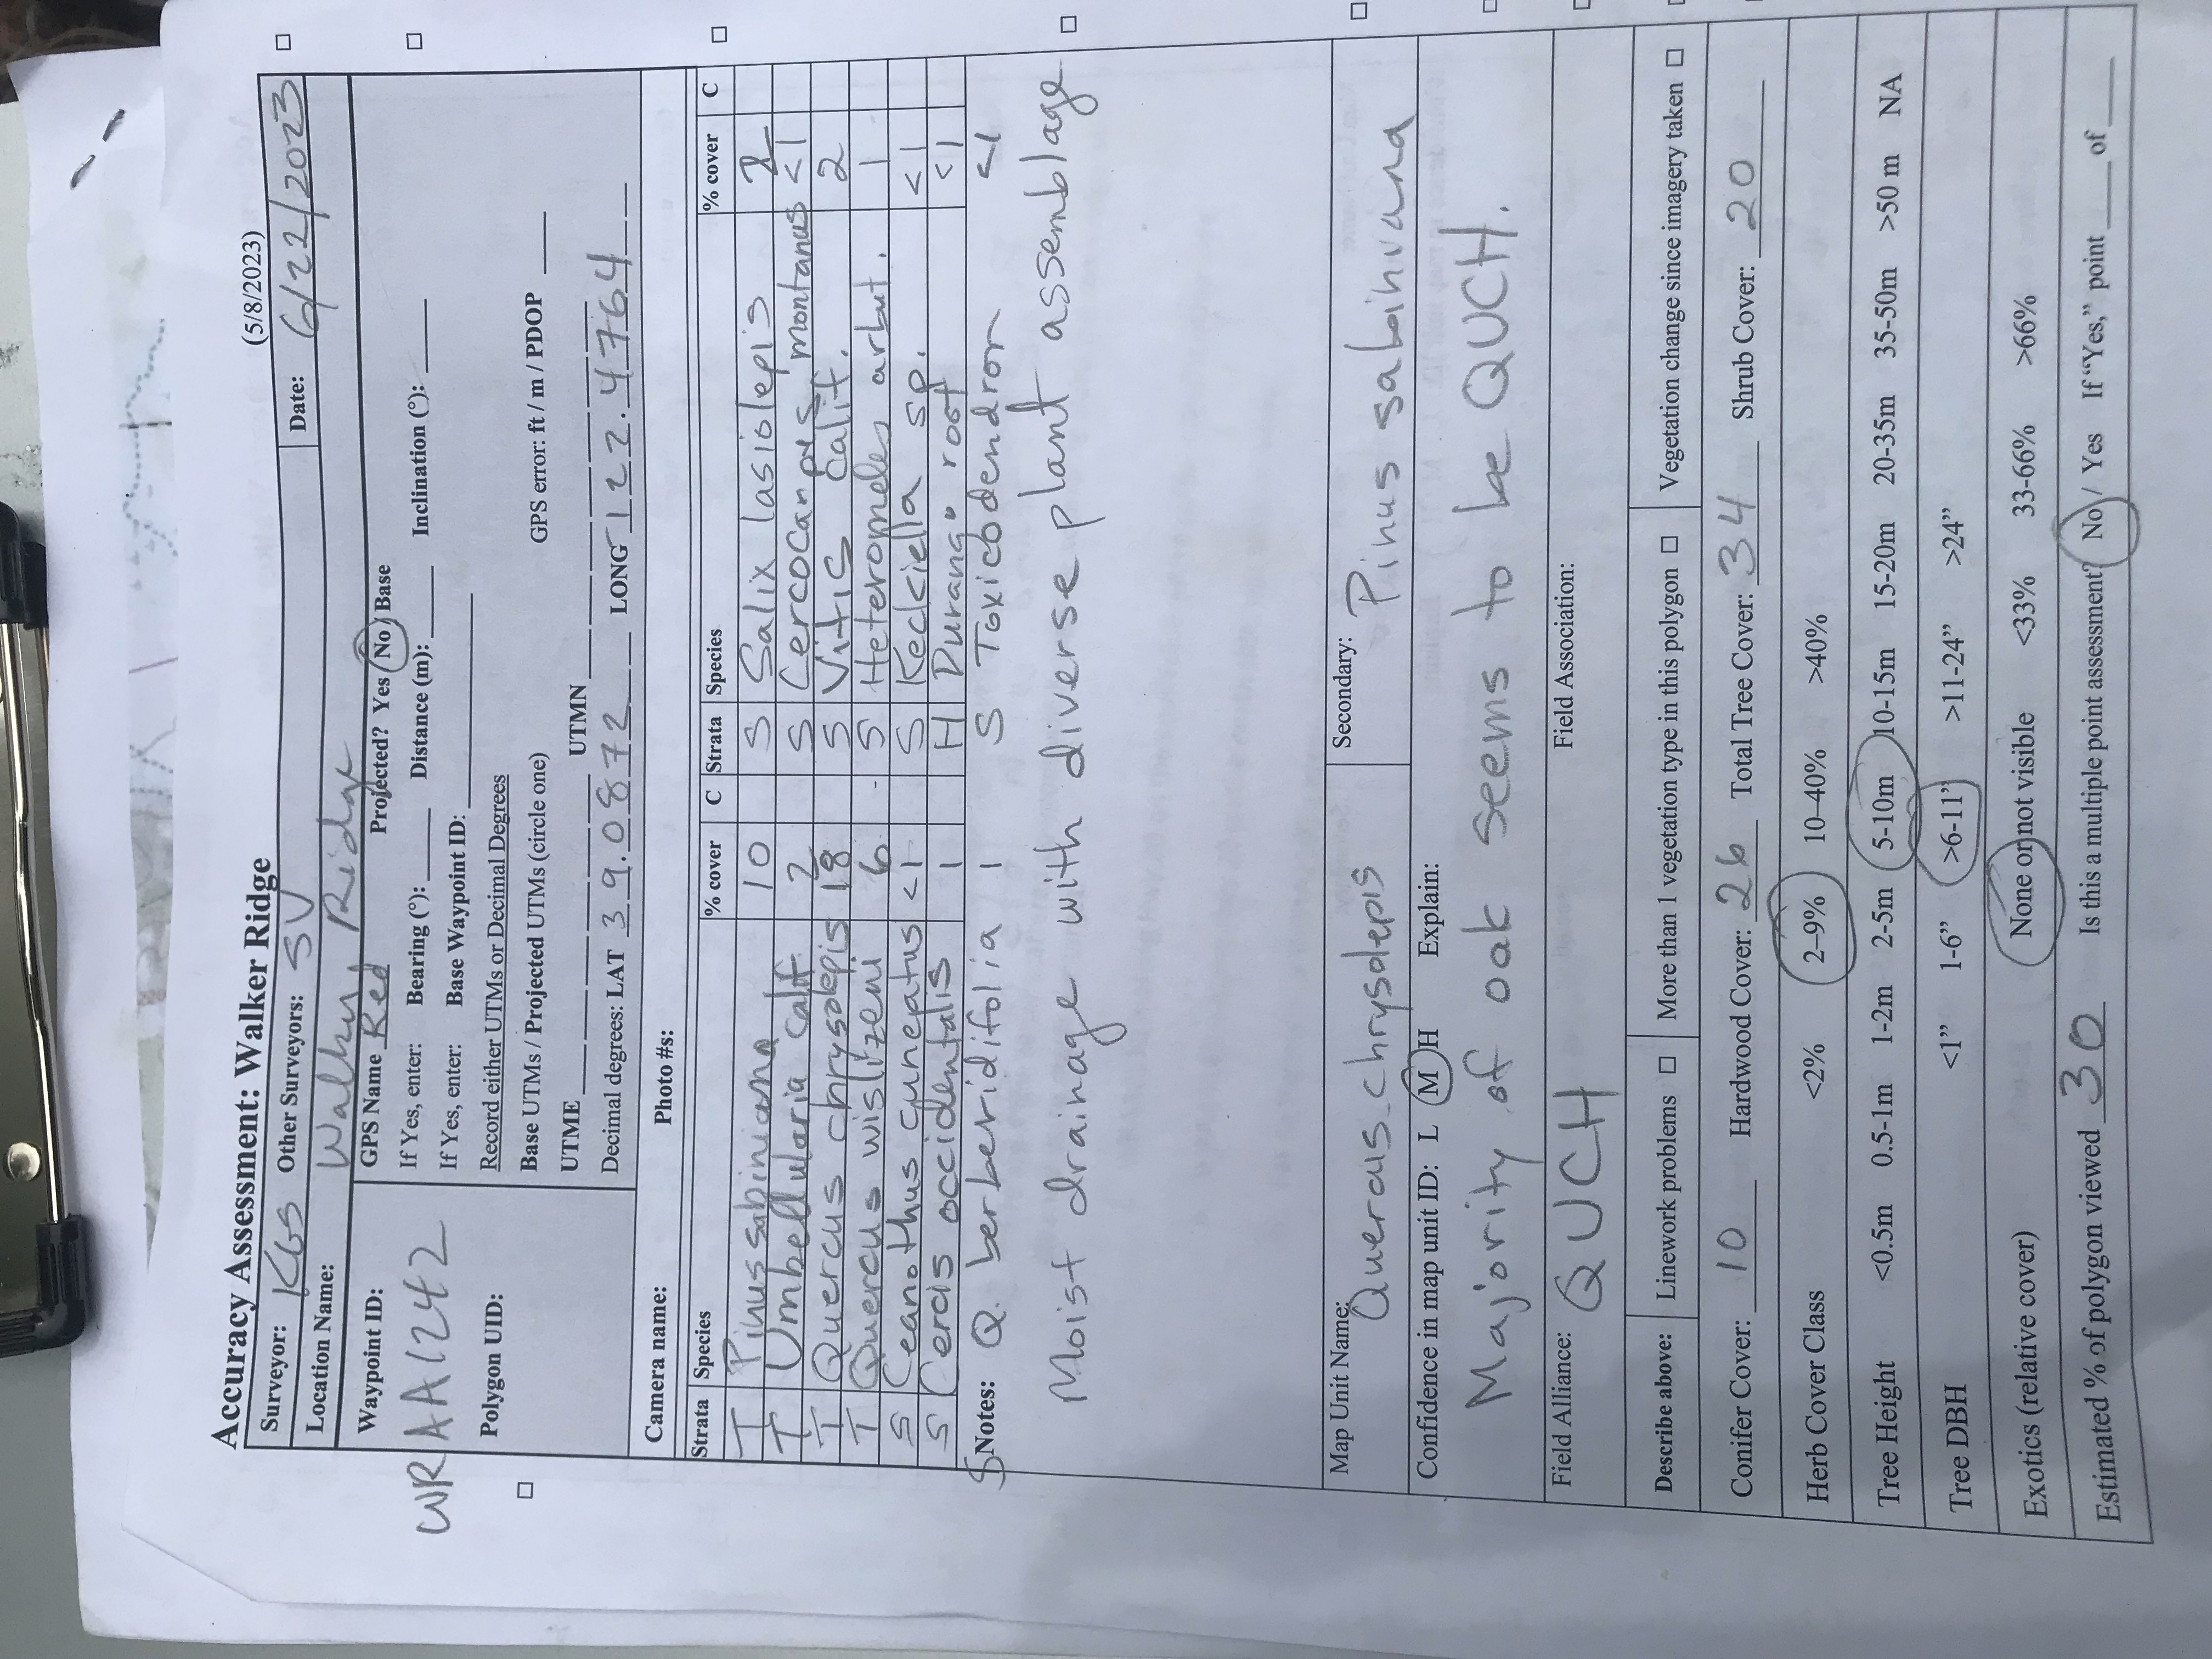 Accuracy Assessment: Walker Ridge (5/8/2023)
Surveyor: KGS Other Surveyors: SV Date: 6/22/2023
Location Name: Walker Ridge
Waypoint ID: WRAA1242
GPS Name Red Projected? Yes / No / Base
If Yes, enter: Bearing (°): ____ Distance (m): ____ Inclination (°): ____
If Yes, enter: Base Waypoint ID: ____
Polygon UID:
Record either UTMs or Decimal Degrees
Base UTMs / Projected UTMs (circle one) GPS error: ft / m / PDOP ____
UTME ____ UTMN ____
Decimal degrees: LAT 39.0872 LONG -122.4764
Camera name: Photo #s:
Strata Species % cover C Strata Species % cover C
T Pinus sabiniana 10 S Salix lasiolepis 2
T Umbellularia calif. 2 S Cercocarpus montanus <1
T Quercus chrysolepis 18 S Vitis calif. 2
T Quercus wislizeni 6 S Heteromeles arbut. 1
S Ceanothus cuneatus <1 S Keckiella sp. <1
S Cercis occidentalis 1 H Durango root <1
S Notes: Q. berberidifolia 1 S Toxicodendron <1
Moist drainage with diverse plant assemblage
Map Unit Name: Quercus chrysolepis Secondary: Pinus sabiniana
Confidence in map unit ID: L M H Explain:
Majority of oak seems to be QUCH.
Field Alliance: QUCH Field Association:
Describe above: Linework problems □ More than 1 vegetation type in this polygon □ Vegetation change since imagery taken □
Conifer Cover: 10 Hardwood Cover: 26 Total Tree Cover: 34 Shrub Cover: 20
Herb Cover Class <2% 2–9% 10–40% >40%
Tree Height <0.5m 0.5-1m 1-2m 2-5m 5-10m 10-15m 15-20m 20-35m 35-50m >50 m NA
Tree DBH <1” 1-6” >6-11” >11-24” >24”
Exotics (relative cover) None or not visible <33% 33-66% >66%
Estimated % of polygon viewed 30 Is this a multiple point assessment? No / Yes If “Yes,” point ____ of ____